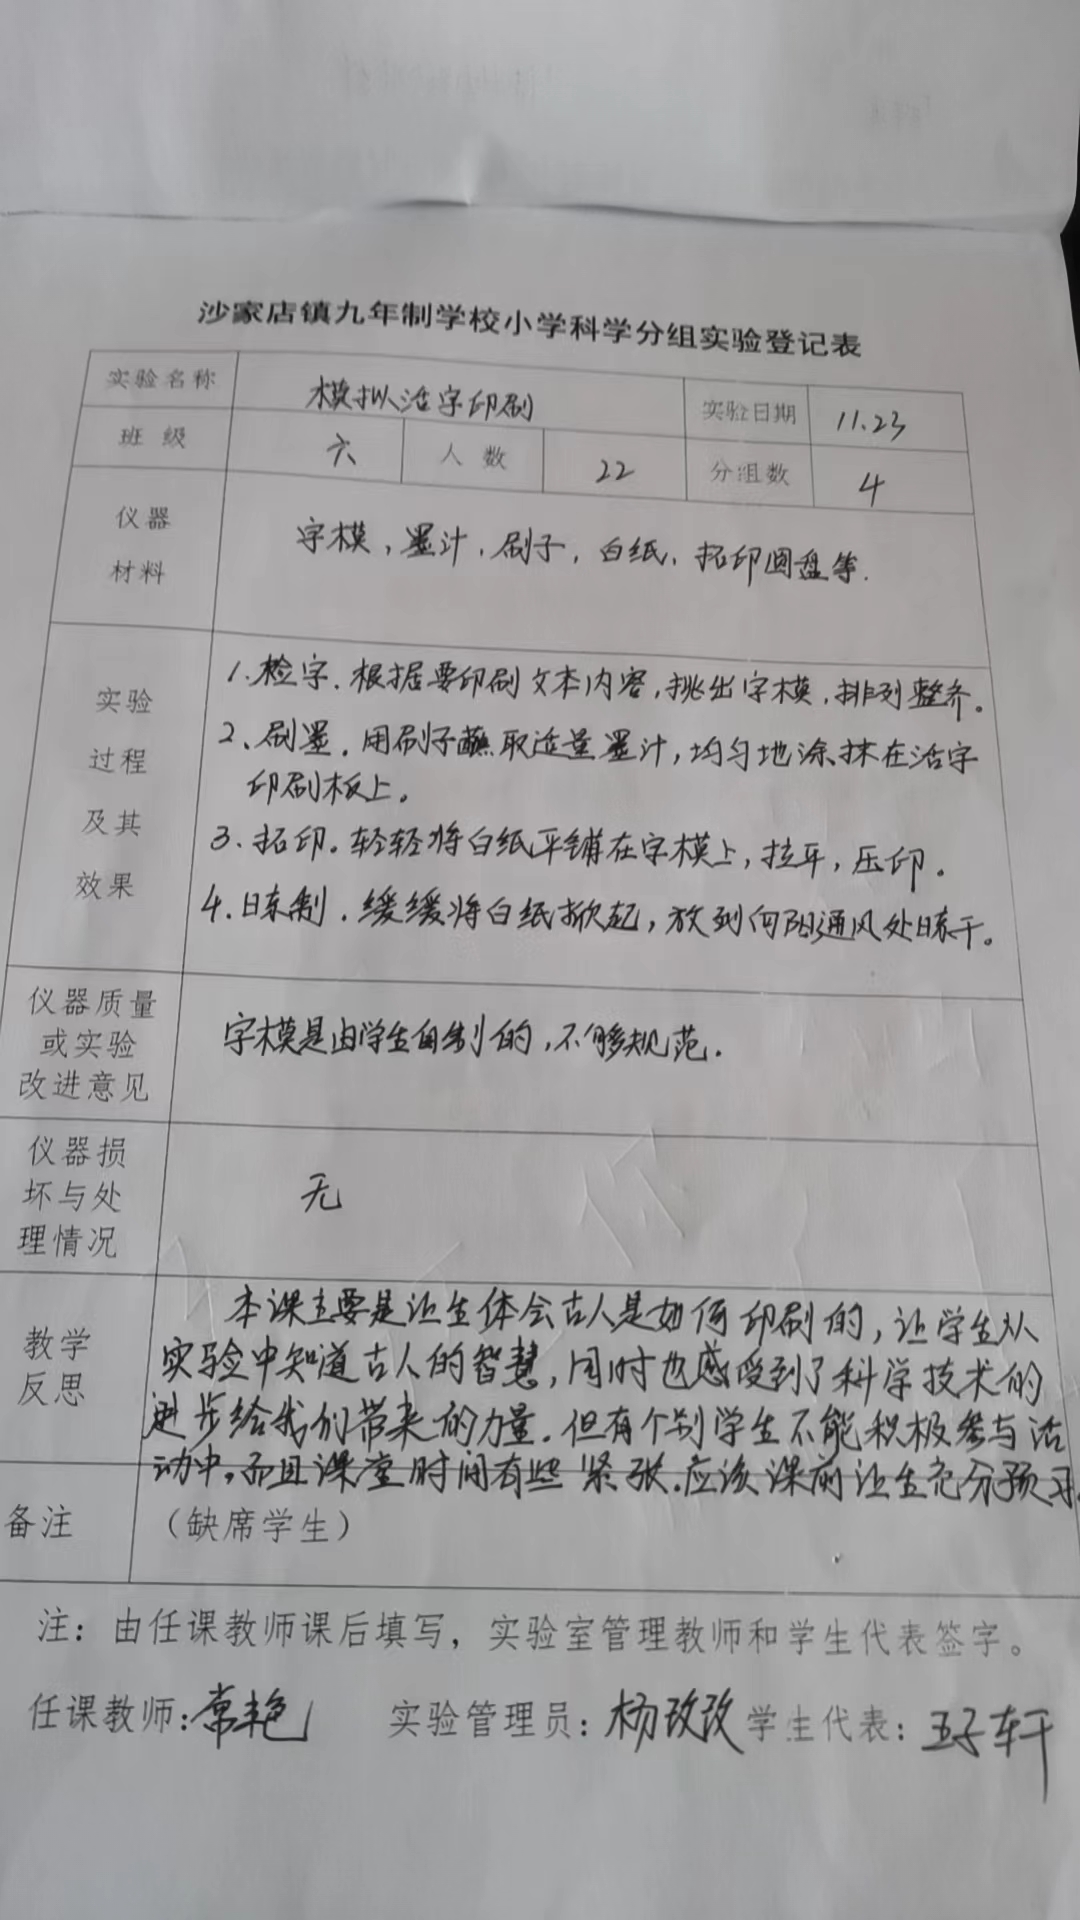 沙家店镇九年制学校小学科学分组实验登记表
实验名称 模拟活字印刷 实验日期 11.23
班级 六 人数 22 分组数 4
仪器材料 字模,墨汁,刷子,白纸,拓印圆盘等.
实验过程及其效果
1.检字.根据要印刷文本内容,挑出字模,排列整齐。
2、刷墨.用刷子蘸取适量墨汁,均匀地涂抹在活字
印刷板上。
3、拓印。轻轻将白纸平铺在字模上,拉平,压印.
4.晾制.缓缓将白纸掀起,放到向阳通风处晾干。
仪器质量或实验改进意见 字模是由学生自制的,不够规范.
仪器损坏与处理情况 无
教学反思
本课主要是让生体会古人是如何印刷的,让学生从
实验中知道古人的智慧,同时也感受到了科学技术的
进步给我们带来的力量.但有个别学生不能积极参与活
动中,而且课堂时间有些紧张.应该课前让生充分预习.
备注 (缺席学生)
注:由任课教师课后填写,实验室管理教师和学生代表签字。
任课教师:常艳 实验管理员:杨改改 学生代表:王子轩